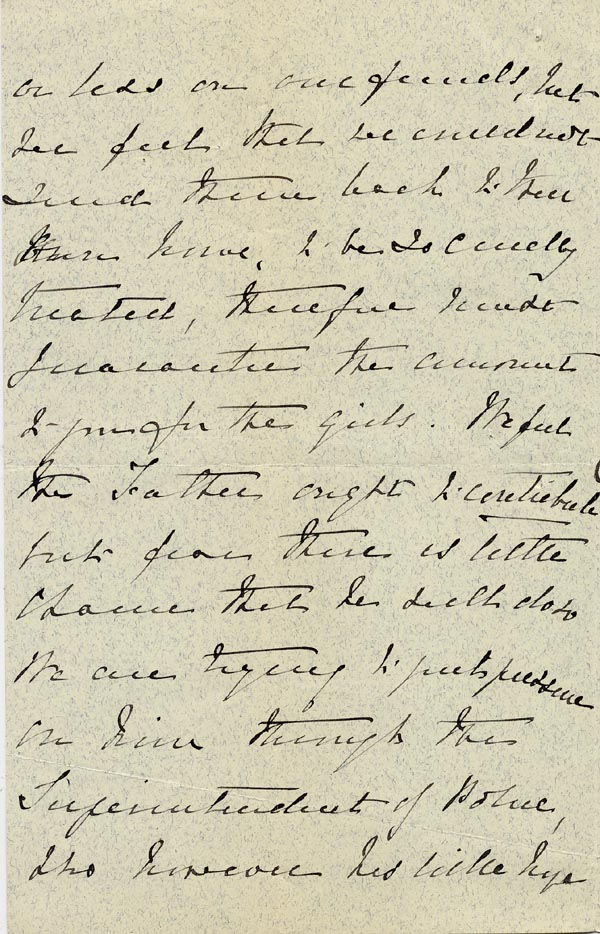 or less on our funds, but
we feel that we could not
send them back to their
own home, to be so cruelly
treated, therefore must
guarantee the amount
to you for the girls. We feel
the Father ought to contribute
but fear there is little
chance that he will do so
We are trying to put pressure
on him through the
Superintendent of Police,
who however has little hope